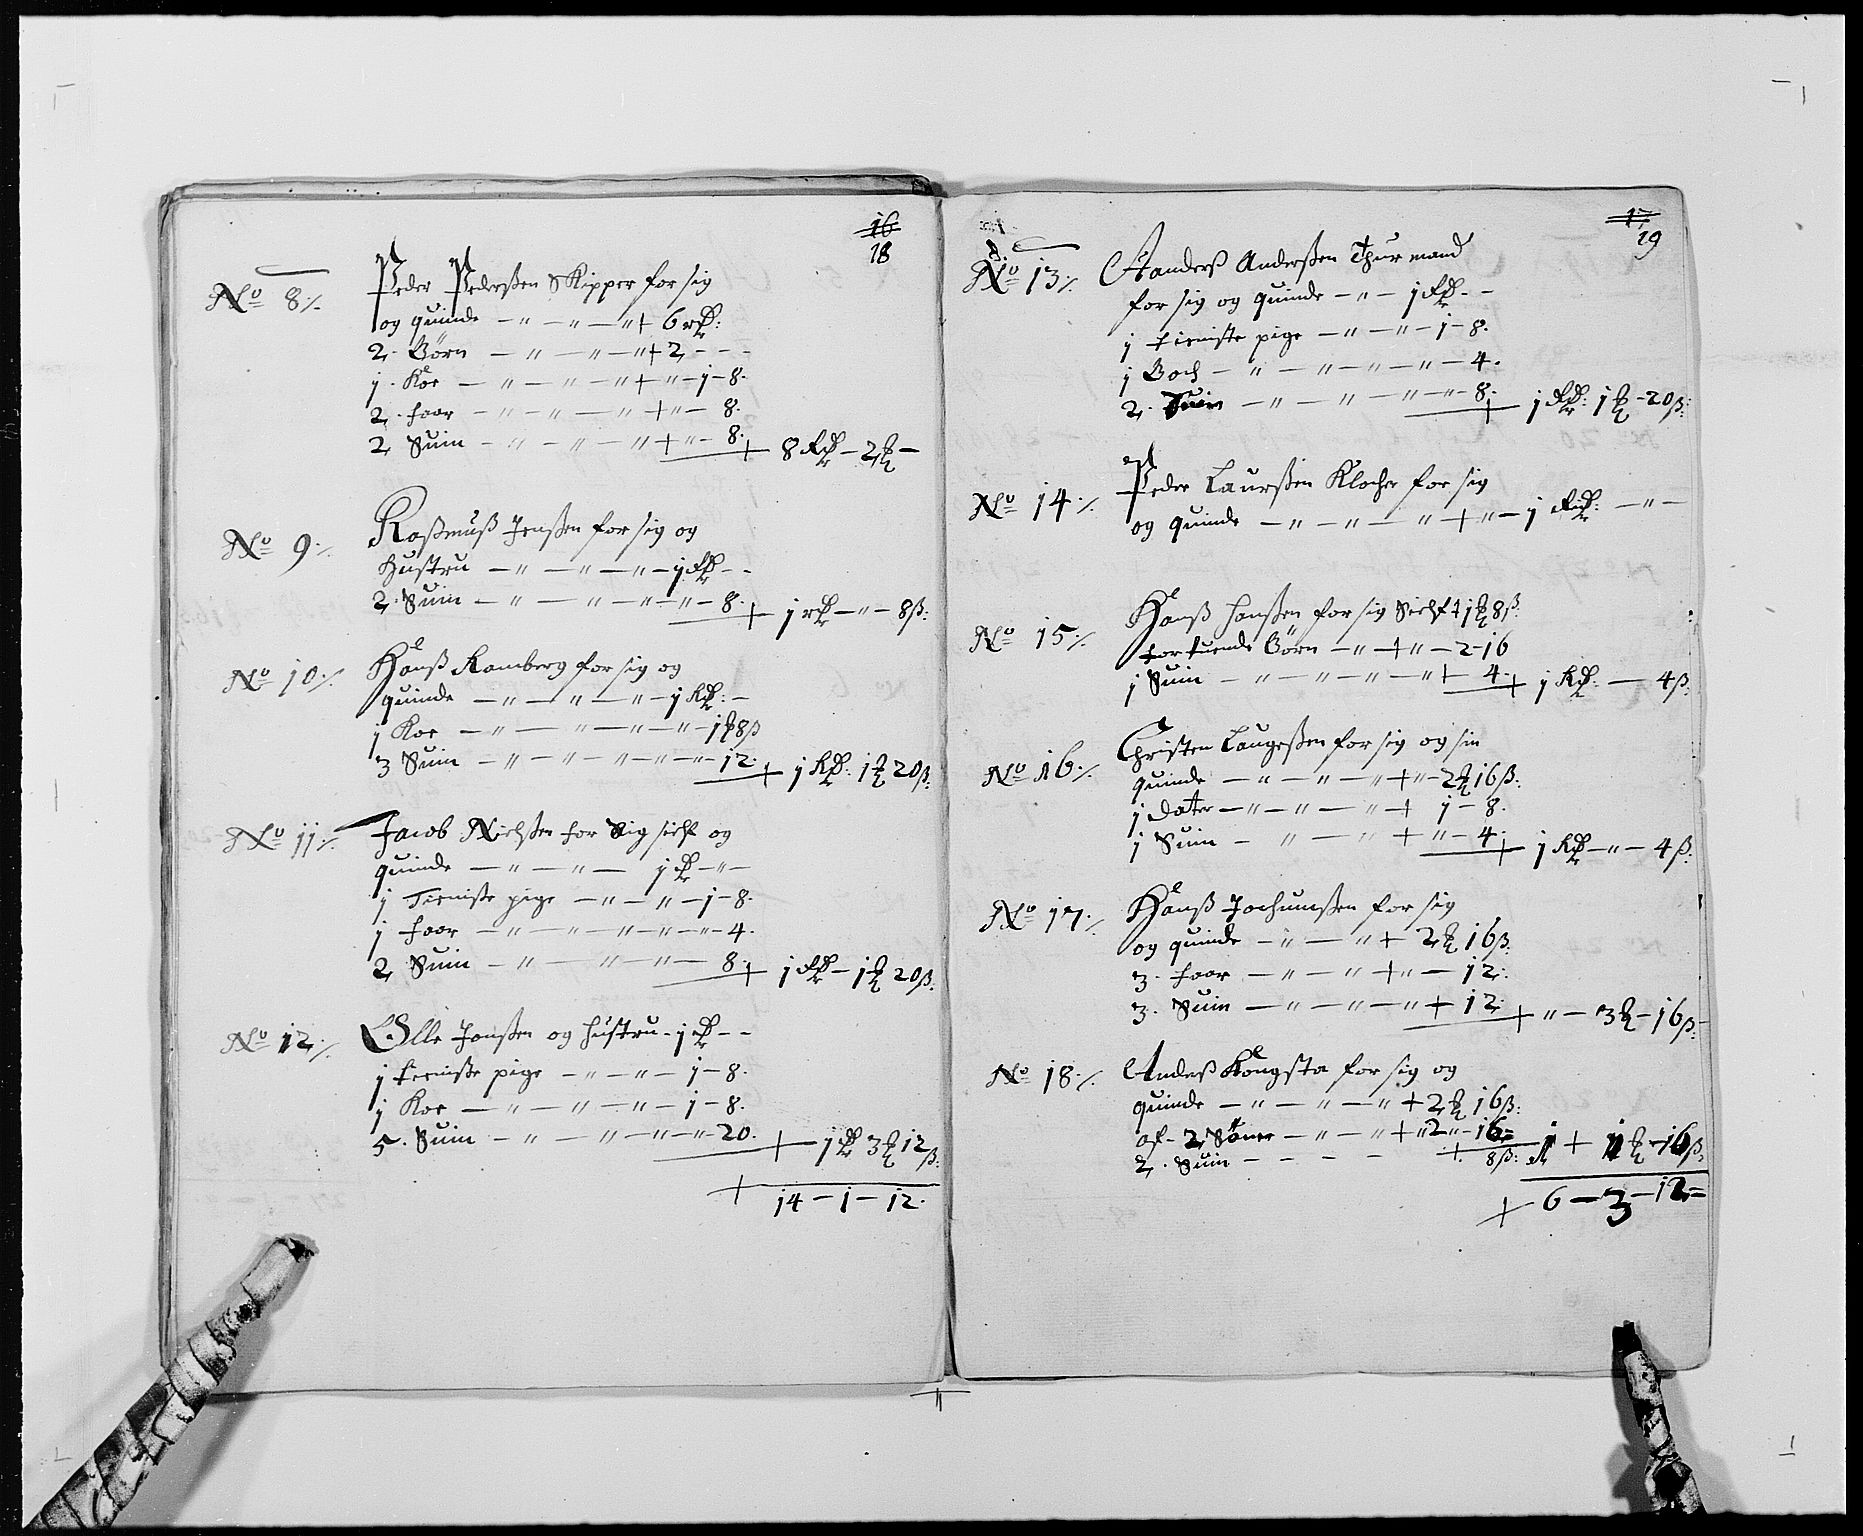 16
18
No 8 ./.
Peder Pedersen Skipper for sig
og quinde — " — " — " + 6 rd:
2. Börn — " — " — " + 2 - - -
j. Koe — " — " — " + " — j — 8.
2. faar — " — " — " + " — 8.
2 Suin — " — " — " + " — 8. + 8 Rd — 2 —
No 9 ./.
Rasmuß Jenßen for sig og
Hustru — " — " — " — j Rd - -
2. Suin — " — " — " — " — 8. + j rd — " — 8 ß:
No 10 ./.
Hanß Ramberg for sig og
quinde — " — " — " — j Rd: —
j Koe — " — " — " — " — j 8 ß
3 Suin — " — " — " — " — " — 12. + j Rd: 1 20 ß:
No jj ./.
Jacob Nielsen for Sig sielf og
quinde — " — " — j Rd — " —
j Tieniste pige — " — " — j — 8.
j faar — " — " — " — " — " — 4.
2 Suin — " — " — " — 8. + j Rd — 1 20 ß:
No 12 ./.
Olle Jonßen og hustru - j Rd - -
j tieniste pige — " — " — j — 8.
j Koe — " — " — " — j — 8.
5. Suin — " — " — " — " — 20. + — j Rd 3 12 ß
+ 14 — 1 — 12.
17
19
No 13 ./.
Anderß Andersen Thurmand
for sig og quinde — " — j Rd - -
j tieniste pige — " — " — j — 8.
j Boch — " — " — " — " — 4.
2. Suin — " — " — " — " — 8. + j Rd: 1 — 20 ß:
No 14 ./.
Peder Laurßen Klocher for sig
og quinde — " — " — " + " — j Rd: — " —
No 15 ./.
Hanß Hanßen for sig Sielf + j 8 ß:
for tuende Börn — " + " — 2 - 16
j Suin — " — " — " — " + 4. + j Rd: — 4 ß:
No 16 ./.
Christen Laugeßen for sig og sin
quinde — " — " — " + " — 2 16 ß:
j dater — " — " — " + j — 8.
j Suin — " — " + " — 4. + j Rd — " — 4 ß:
No 17 ./.
Hanß Jochumßen for sig
og quinde — " — " + 2 16 ß:
3. faar — " — " + " — 12.
3. Suin — " — " — " + 12. + " — 3 — 16 ß:
No 18 ./.
Anderß Kongsta for sig og
quinde — " — " — " + 2 16 ß:
af - 2 Söner — " — " + " 2 " — 16 =
2. Suin - - - - + 8 ß: 1 + 1 — 16 ß:
+ 6 — 3 — 12 =